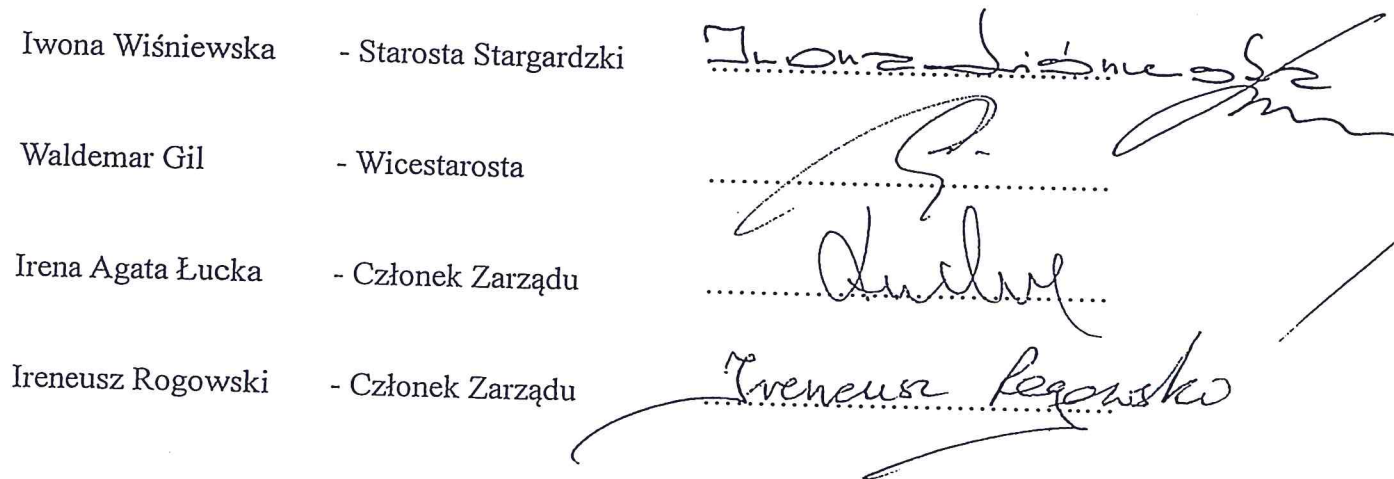 Iwona Wiśniewska - Starosta Stargardzki
Waldemar Gil - Wicestarosta
Irena Agata Łucka - Członek Zarządu
Ireneusz Rogowski - Członek Zarządu Ireneusz